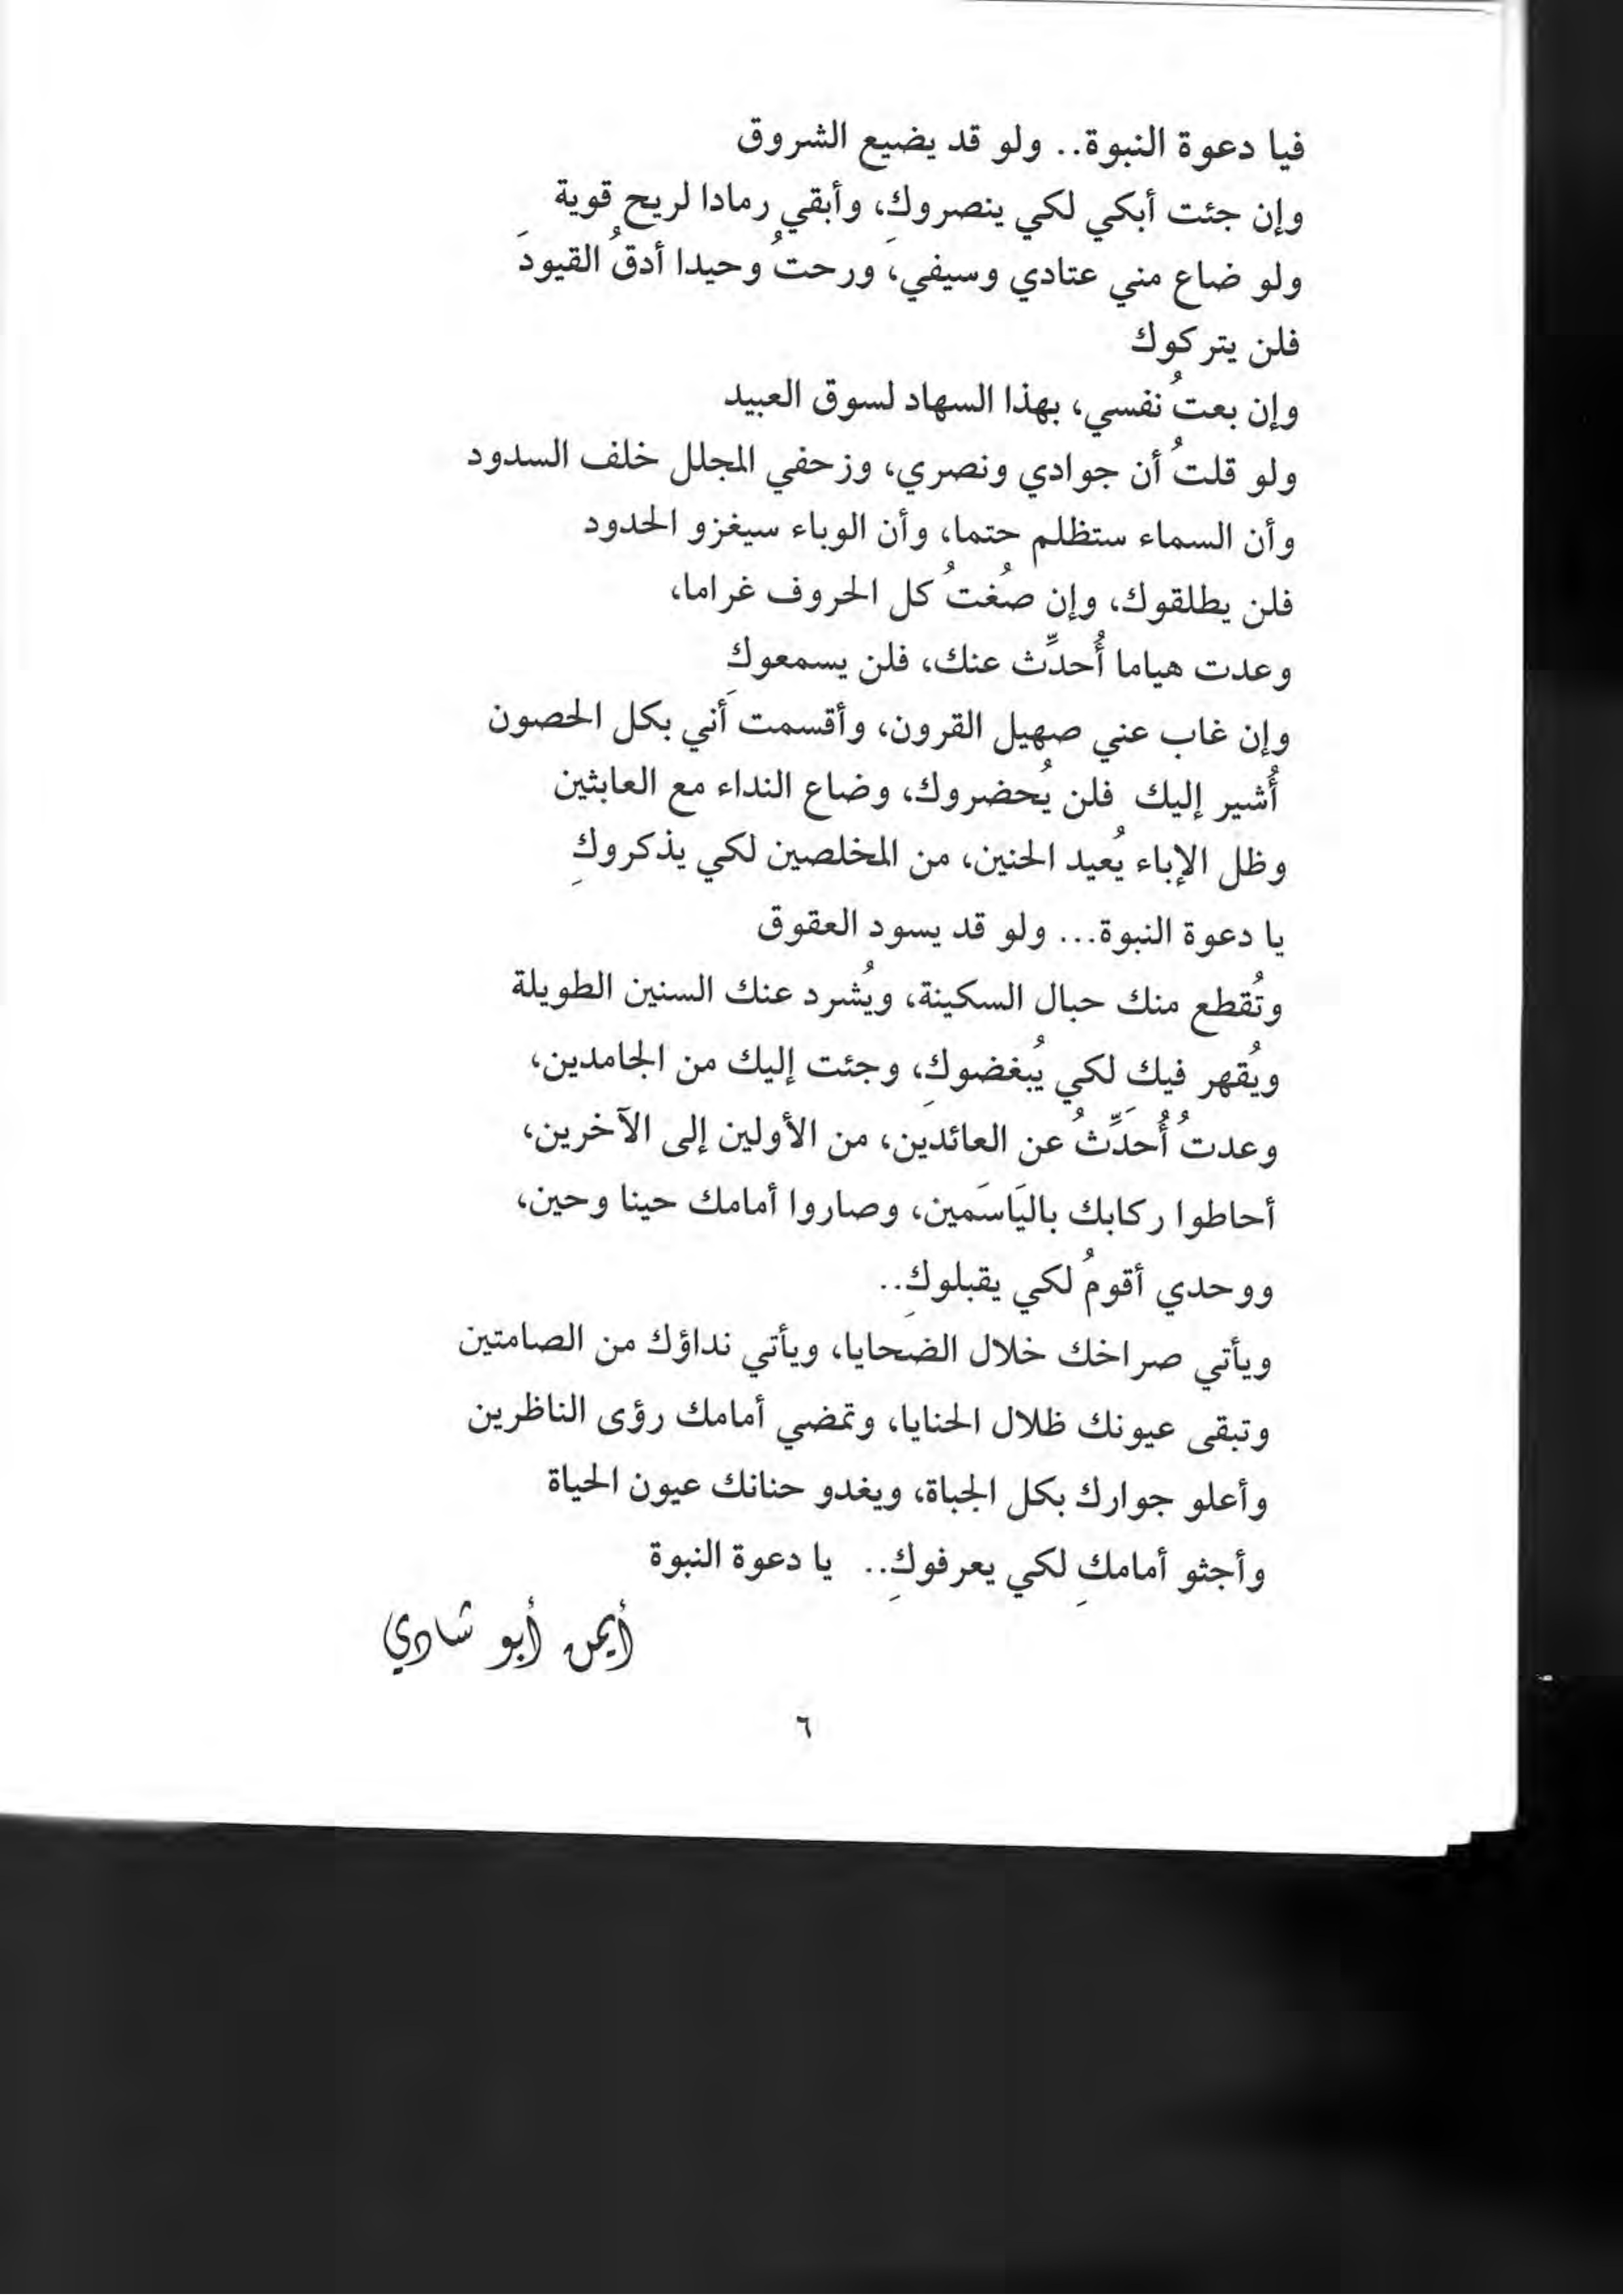 فيا دعوة النبوة.. ولو قد يضيع الشروق
وإن جئت أبكي لكي ينصروكِ، وأبقي رمادا لريح قوية
ولو ضاع مني عتادي وسيفي، ورحتُ وحيدا أدقُ القيودَ
فلن يتركوك
وإن بعتُ نفسي، بهذا السهاد لسوق العبيد
ولو قلتُ أن جوادي ونصري، وزحفي المجلل خلف السدود
وأن السماء ستظلم حتما، وأن الوباء سيغزو الحدود
فلن يطلقوك، وإن صُغتُ كل الحروف غراما،
وعدت هياما أُحدِّث عنك، فلن يسمعوكِ
وإن غاب عني صهيل القرون، وأقسمت أني بكل الحصون
أُشير إليك فلن يُحضروك، وضاع النداء مع العابثين
وظل الإباء يُعيد الحنين، من المخلصين لكي يذكروكِ
يا دعوة النبوة... ولو قد يسود العقوق
وتُقطع منك حبال السكينة، ويُشرد عنك السنين الطويلة
ويُقهر فيك لكي يُبغضوكِ، وجئت إليك من الجامدين،
وعدتُ أُحَدِّثُ عن العائدين، من الأولين إلى الآخرين،
أحاطوا ركابك باليَاسَمين، وصاروا أمامك حينا وحين،
ووحدي أقومُ لكي يقبلوكِ..
ويأتي صراخك خلال الضحايا، ويأتي نداؤك من الصامتين
وتبقى عيونك ظلال الحنايا، وتمضي أمامك رؤى الناظرين
وأعلو جوارك بكل الجباة، ويغدو حنانك عيون الحياة
وأجثو أمامكِ لكي يعرفوكِ.. يا دعوة النبوة
أيمن أبو شادي
٦